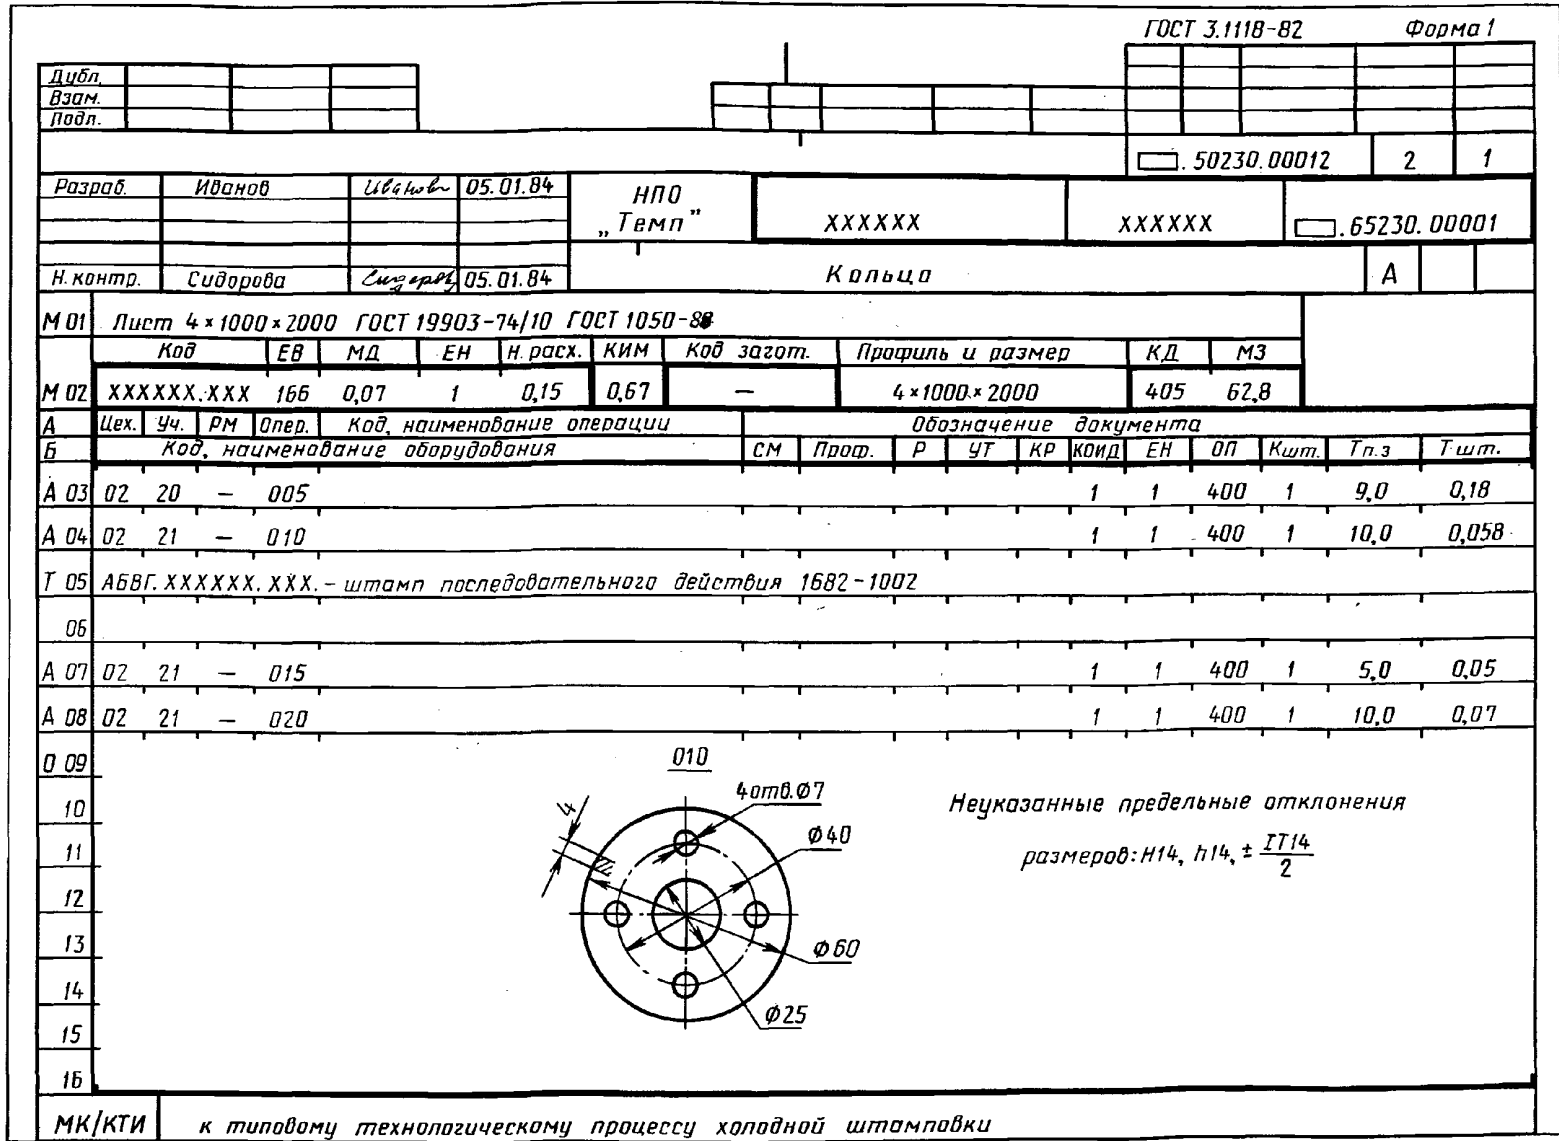 ГОСТ 3.1118-82 Форма 1
Дубл.
Взам.
Подл.
.50230.00012 2 1
Разраб. Иванов Иванов 05.01.84 НПО „Темп" XXXXXX XXXXXX .65230.00001
Н. контр. Сидорова 05.01.84 Кольцо А
М 01 Лист 4×1000×2000 ГОСТ 19903-74/10 ГОСТ 1050-88
Код ЕВ МД ЕН Н. расх. КИМ Код загот. Профиль и размер КД МЗ
М 02 XXXXXX.XXX 166 0,07 1 0,15 0,67 — 4×1000×2000 405 62,8
А Цех. Уч. РМ Опер. Код, наименование операции Обозначение документа
Б Код, наименование оборудования СМ Проф. Р УТ КР КОИД ЕН ОП Кшт. Тп.з Т шт.
А 03 02 20 — 005 1 1 400 1 9,0 0,18
А 04 02 21 — 010 1 1 400 1 10,0 0,058
Т 05 АБВГ. XXXXXX. XXX. - штамп последовательного действия 1682-1002
06
А 07 02 21 — 015 1 1 400 1 5,0 0,05
А 08 02 21 — 020 1 1 400 1 10,0 0,07
О 09 010
10 4 4отв.Ø7 Неуказанные предельные отклонения
11 Ø40 размеров: H14, h14, ± IT14/2
12
13 Ø60
14 Ø25
15
16
МК/КТИ к типовому технологическому процессу холодной штамповки